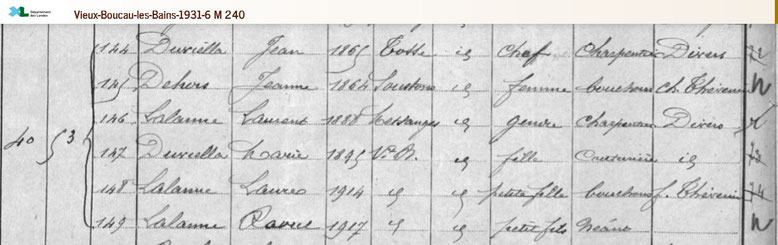 Département des Landes
Vieux-Boucau-les-Bains-1931-6 M 240
144 Duviella Jean 1865 Tosse id chef Charpentier Divers
145 Dehors Jeanne 1864 Soustons id femme bouchons ch. Thévenin
40 53 146 Lalanne Laurent 1888 Messanges id gendre Charpentier Divers
147 Duviella Marie 1895 V.B. id fille Couturière id
148 Lalanne Laure 1914 id id petite fille bouchons f. Thévenin
149 Lalanne Raoul 1917 id id petit fils Néant